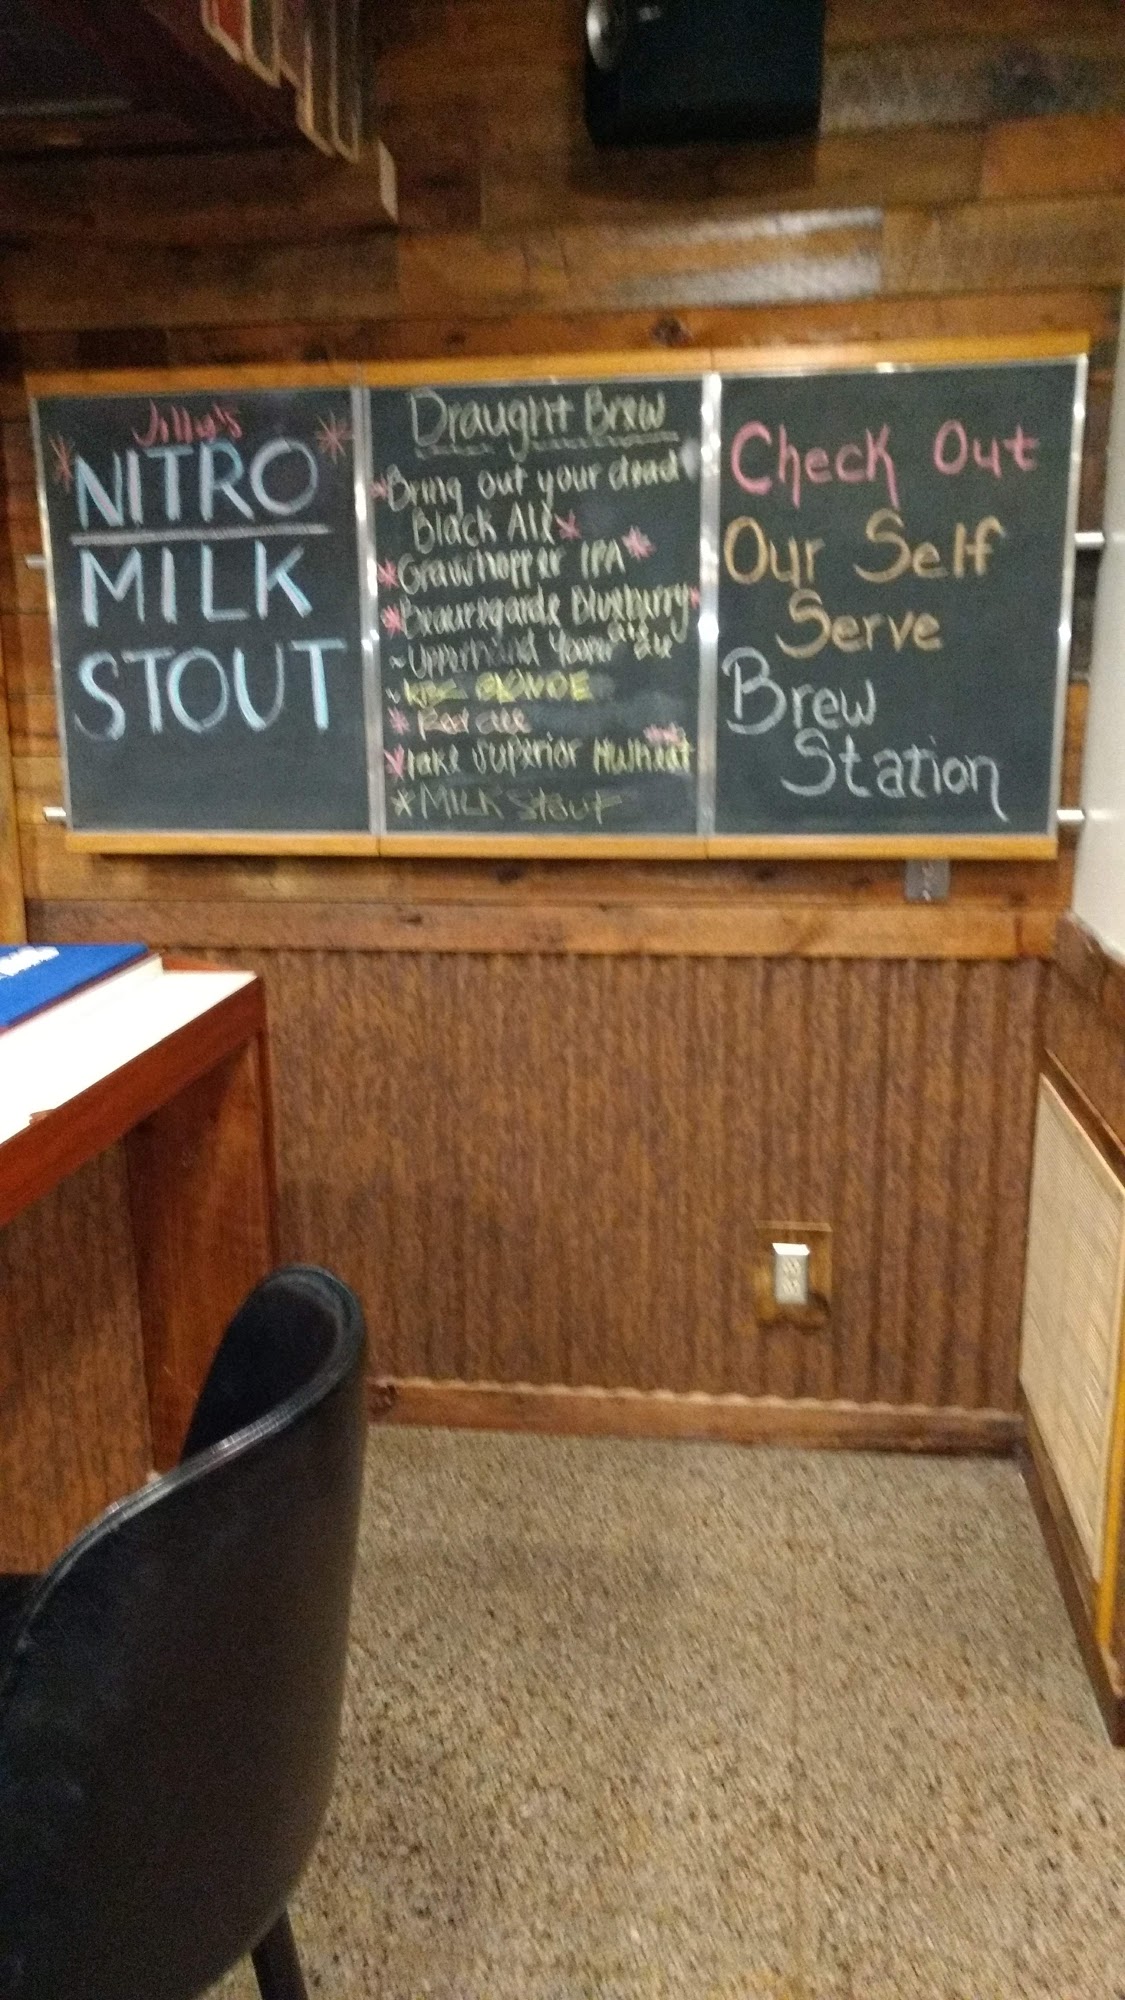 Jilly's
NITRO
MILK
STOUT
Draught Brew
Bring out your dead
Black Ale
Grasshopper IPA
Beauregarde Blueberry
ale
Upperhand Yooper ale
KBC BLONDE
Red ale
Lake Superior Wheat
MILK Stout
Check Out
Our Self
Serve
Brew
Station